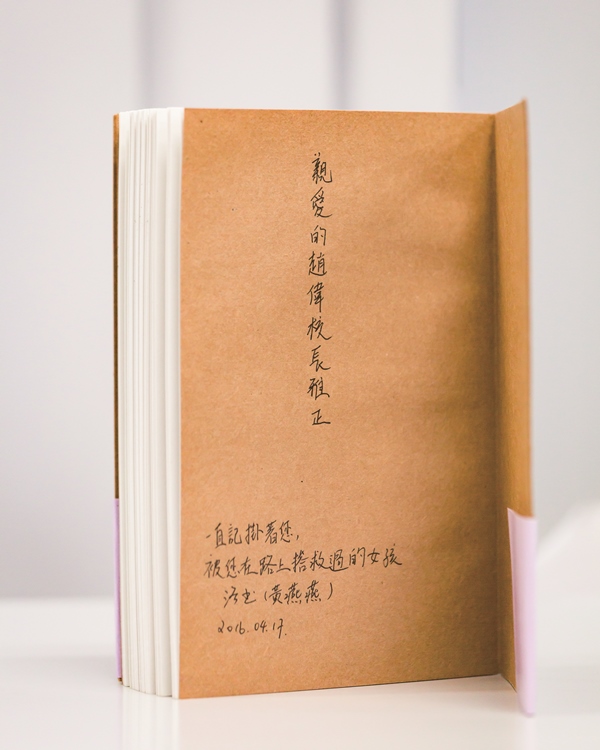 親愛的趙偉校長雅正
一直記掛着您,
被您在路上搭救過的女孩
(黃燕燕)
2016.04.17.